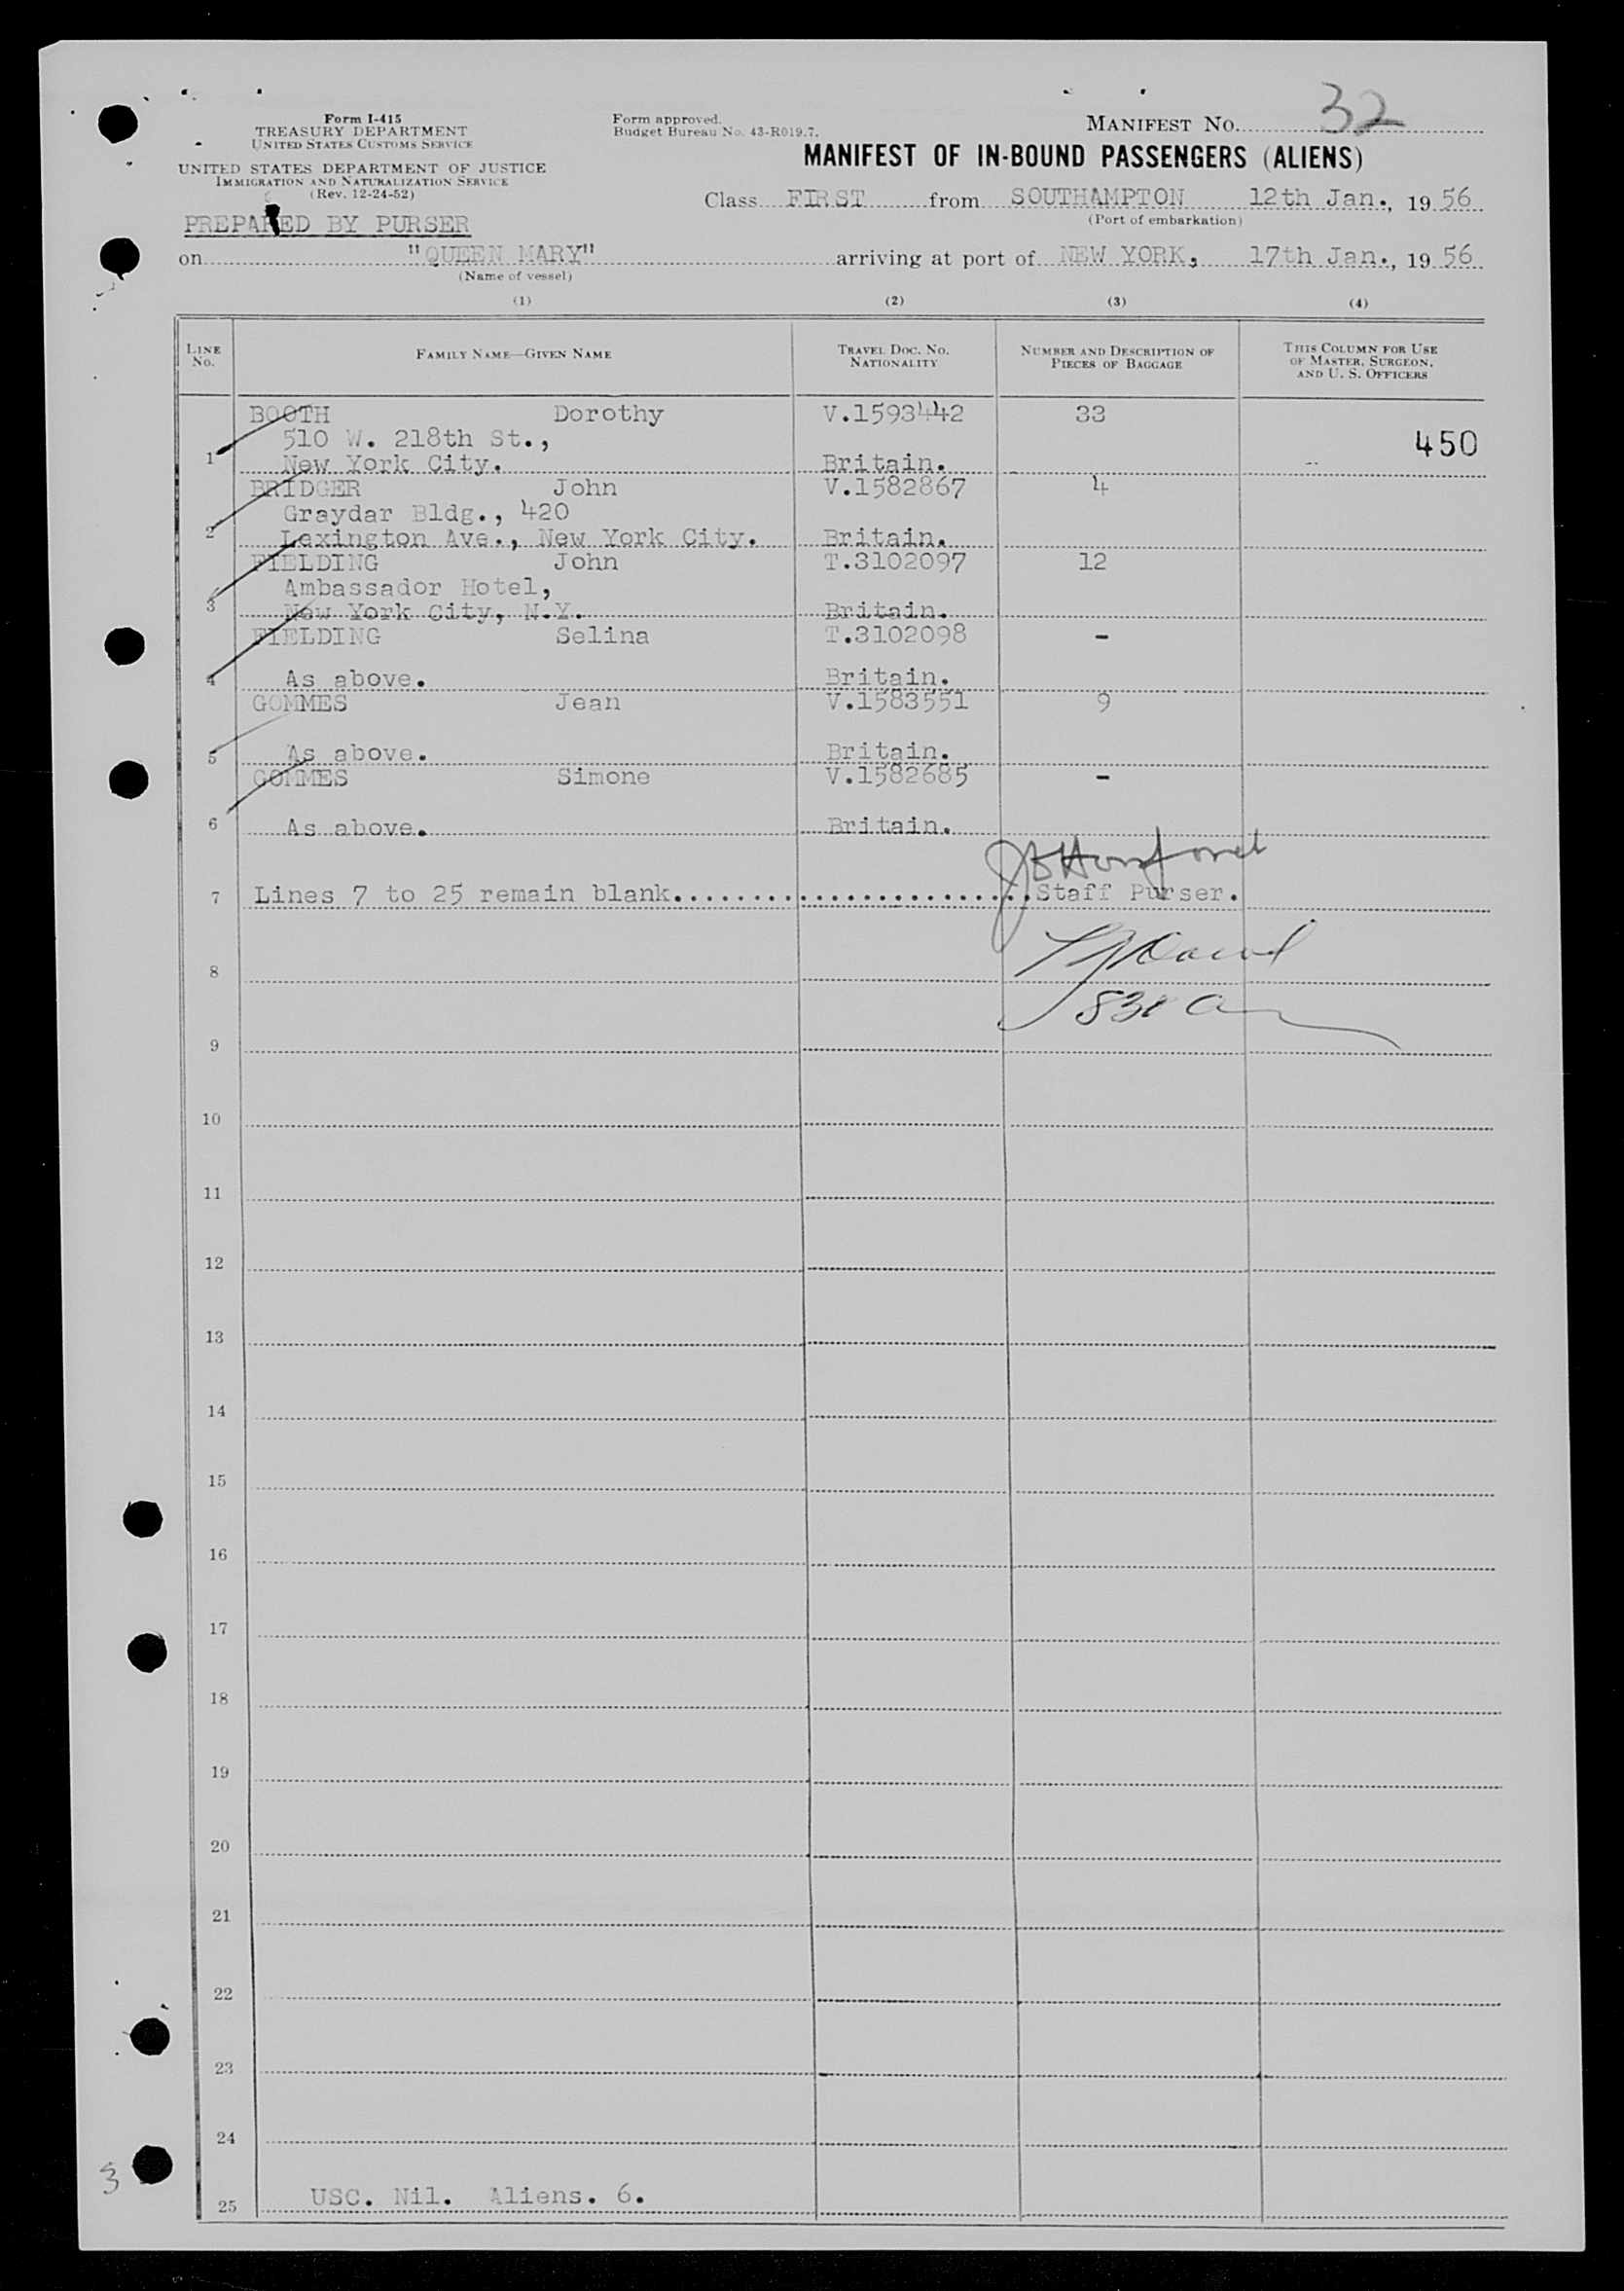 Form I-415
TREASURY DEPARTMENT
UNITED STATES CUSTOMS SERVICE
UNITED STATES DEPARTMENT OF JUSTICE
IMMIGRATION AND NATURALIZATION SERVICE
(Rev. 12-24-52)
PREPARED BY PURSER
Form approved.
Budget Bureau No. 43-R019.7.
MANIFEST NO. 32
MANIFEST OF IN-BOUND PASSENGERS (ALIENS)
Class FIRST from SOUTHAMPTON 12th Jan., 1956
(Port of embarkation)
on "QUEEN MARY" arriving at port of NEW YORK, 17th Jan., 1956
(Name of vessel)
(1) (2) (3) (4)
LINE NO. FAMILY NAME—GIVEN NAME TRAVEL DOC. NO. NATIONALITY NUMBER AND DESCRIPTION OF PIECES OF BAGGAGE THIS COLUMN FOR USE OF MASTER, SURGEON, AND U. S. OFFICERS
BOOTH Dorothy V.1593442 33
510 W. 218th St., 450
1 New York City. Britain.
BRIDGER John V.1582867 4
Graydar Bldg., 420
2 Lexington Ave., New York City. Britain.
FIELDING John T.3102097 12
Ambassador Hotel,
3 New York City, N.Y. Britain.
FIELDING Selina T.3102098 -
4 As above. Britain.
GOMMES Jean V.1583551 9
5 As above. Britain.
GOMMES Simone V.1582685 -
6 As above. Britain.
7 Lines 7 to 25 remain blank............................Staff Purser.
8
9
10
11
12
13
14
15
16
17
18
19
20
21
22
23
24
3
25 USC. Nil. Aliens. 6.